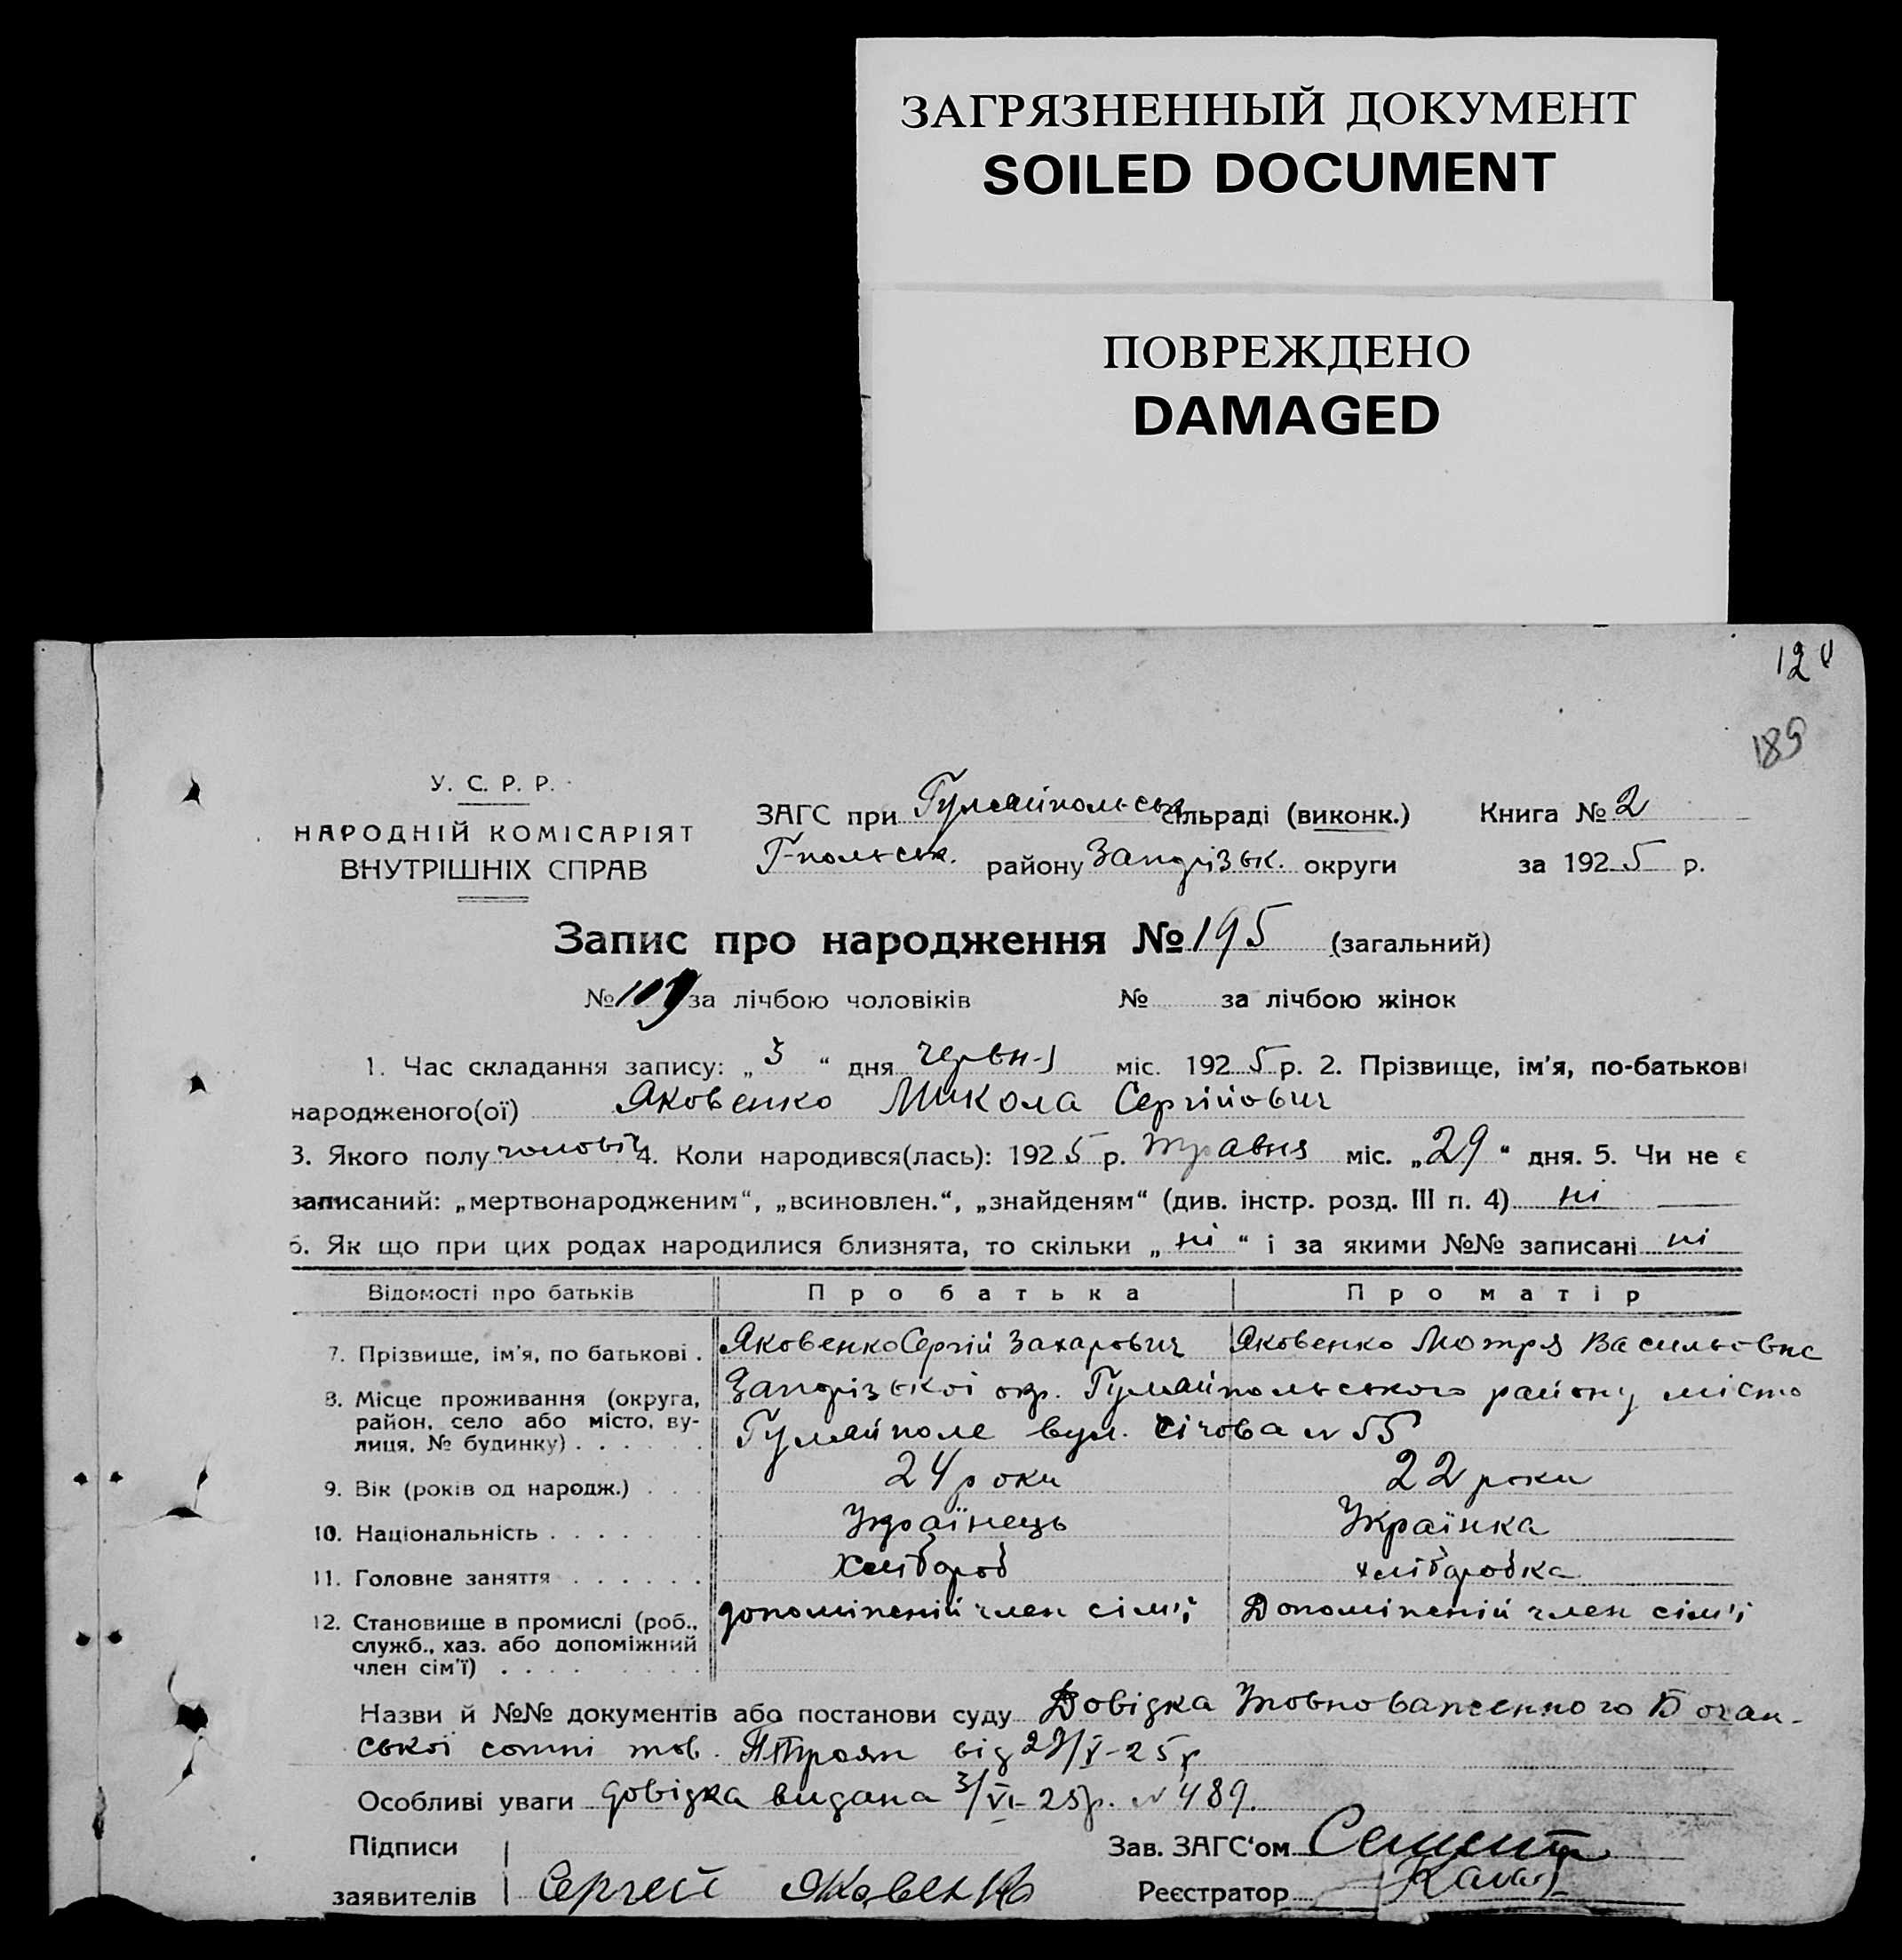 ЗАГРЯЗНЕННЫЙ ДОКУМЕНТ
SOILED DOCUMENT
ПОВРЕЖДЕНО
DAMAGED
189
У. С. Р. Р.
НАРОДНІЙ КОМІСАРІЯТ
ВНУТРІШНІХ СПРАВ
ЗАГС при Гуляйпольськ сільраді (виконк.) Книга № 2
Г-польськ. району Запорізьк. округи за 1925 р.
Запис про народження № 195 (загальний)
№ 109 за лічбою чоловіків № за лічбою жінок
1. Час складання запису: „3“ дня червн-я міс. 1925 р. 2. Прізвище, ім'я, по-батькові
народженого(ої) Яковенко Микола Сергійович
3. Якого полу чоловіч 4. Коли народився(лась): 1925 р. травня міс. „29“ дня. 5. Чи не є
записаний: „мертвонародженим“, „всиновлен.“, „знайденям“ (див. інстр. розд. III п. 4) ні
6. Як що при цих родах народилися близнята, то скільки „ні“ і за якими №№ записані ні
Відомості про батьків Про батька Про матір
7. Прізвище, ім'я, по батькові . Яковенко Сергій Захарович Яковенко Мотря Васильовна
8. Місце проживання (округа, район, село або місто, вулиця, № будинку) Запорізької окр. Гуляйпольського району місто
Гуляйполе вул. Січова № 55
9. Вік (років од народж.) . . . 24 роки 22 роки
10. Національність . . . . . . Українець Українка
11. Головне заняття . . . . . . Хлібороб хліборобка
12. Становище в промислі (роб., допоміжній член сім'ї Допоміжній член сім'ї
служб., хаз. або допоміжний
член сім'ї) . . . .
Назви й №№ документів або постанови суду Довідка Уповноваженного Бочан-
ської сотні тов. Троян від 29/V-25 р
Особливі уваги довідка видана 3/VI-25 р. № 489.
Підписи Зав. ЗАГС'ом
заявителів Сергей Яковенко Реєстратор